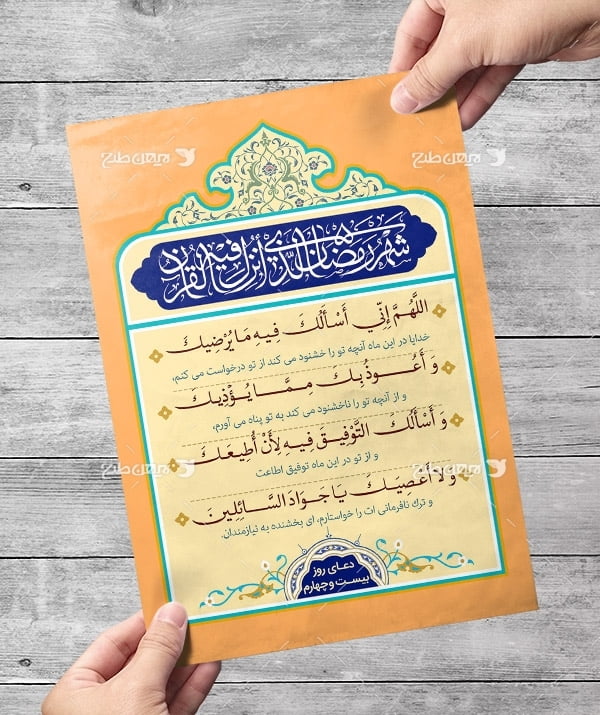 شهر رمضان الذي أنزل فيه القرآن
اللهُمَّ إِنِّي أَسْأَلُكَ فِيهِ مَا يُرْضِيكَ
خدایا در این ماه آنچه تو را خشنود می کند از تو درخواست می کنم،
وَ أَعُوذُ بِكَ مِمَّا يُؤْذِيكَ
و از آنچه تو را ناخشنود می کند به تو پناه می آورم،
وَ أَسْأَلُكَ التَّوْفِيقَ فِيهِ لِأَنْ أُطِيعَكَ
و از تو در این ماه توفیق اطاعت
وَ لا أَعْصِيَكَ يَا جَوَادَ السَّائِلِينَ
و ترک نافرمانی ات را خواستارم، ای بخشنده به نیازمندان.
دعای روز
بیست و چهارم
میهن طرح
میهن طرح
میهن طرح
میهن طرح